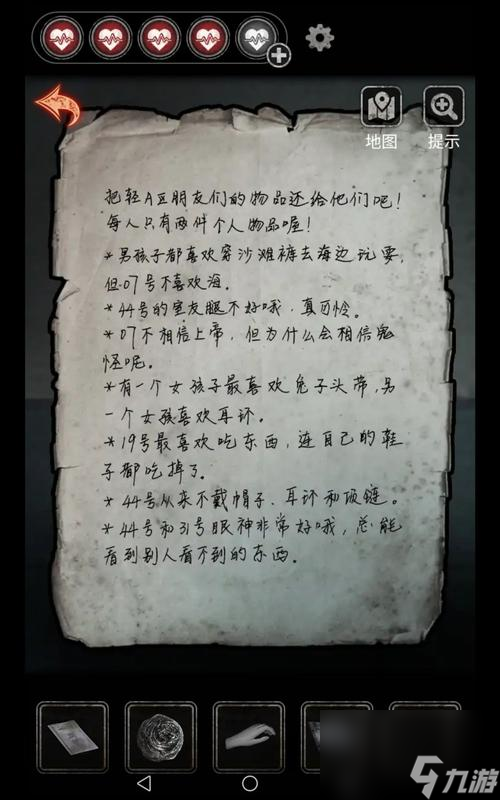 地图
提示
把轻A豆朋友们的物品还给他们吧!
每人只有两件个人物品喔!
*男孩子都喜欢穿沙滩裤去海边玩耍,
但07号不喜欢海。
*44号的室友腿不好哦,真可怜。
*07不相信上帝,但为什么会相信鬼
怪呢。
*有一个女孩子最喜欢兔子头带,另
一个女孩喜欢耳环。
*19号最喜欢吃东西,连自己的鞋
子都吃掉了。
*44号从来不戴帽子、耳环和项链。
*44号和31号眼神非常好哦,总能
看到别人看不到的东西。
九游